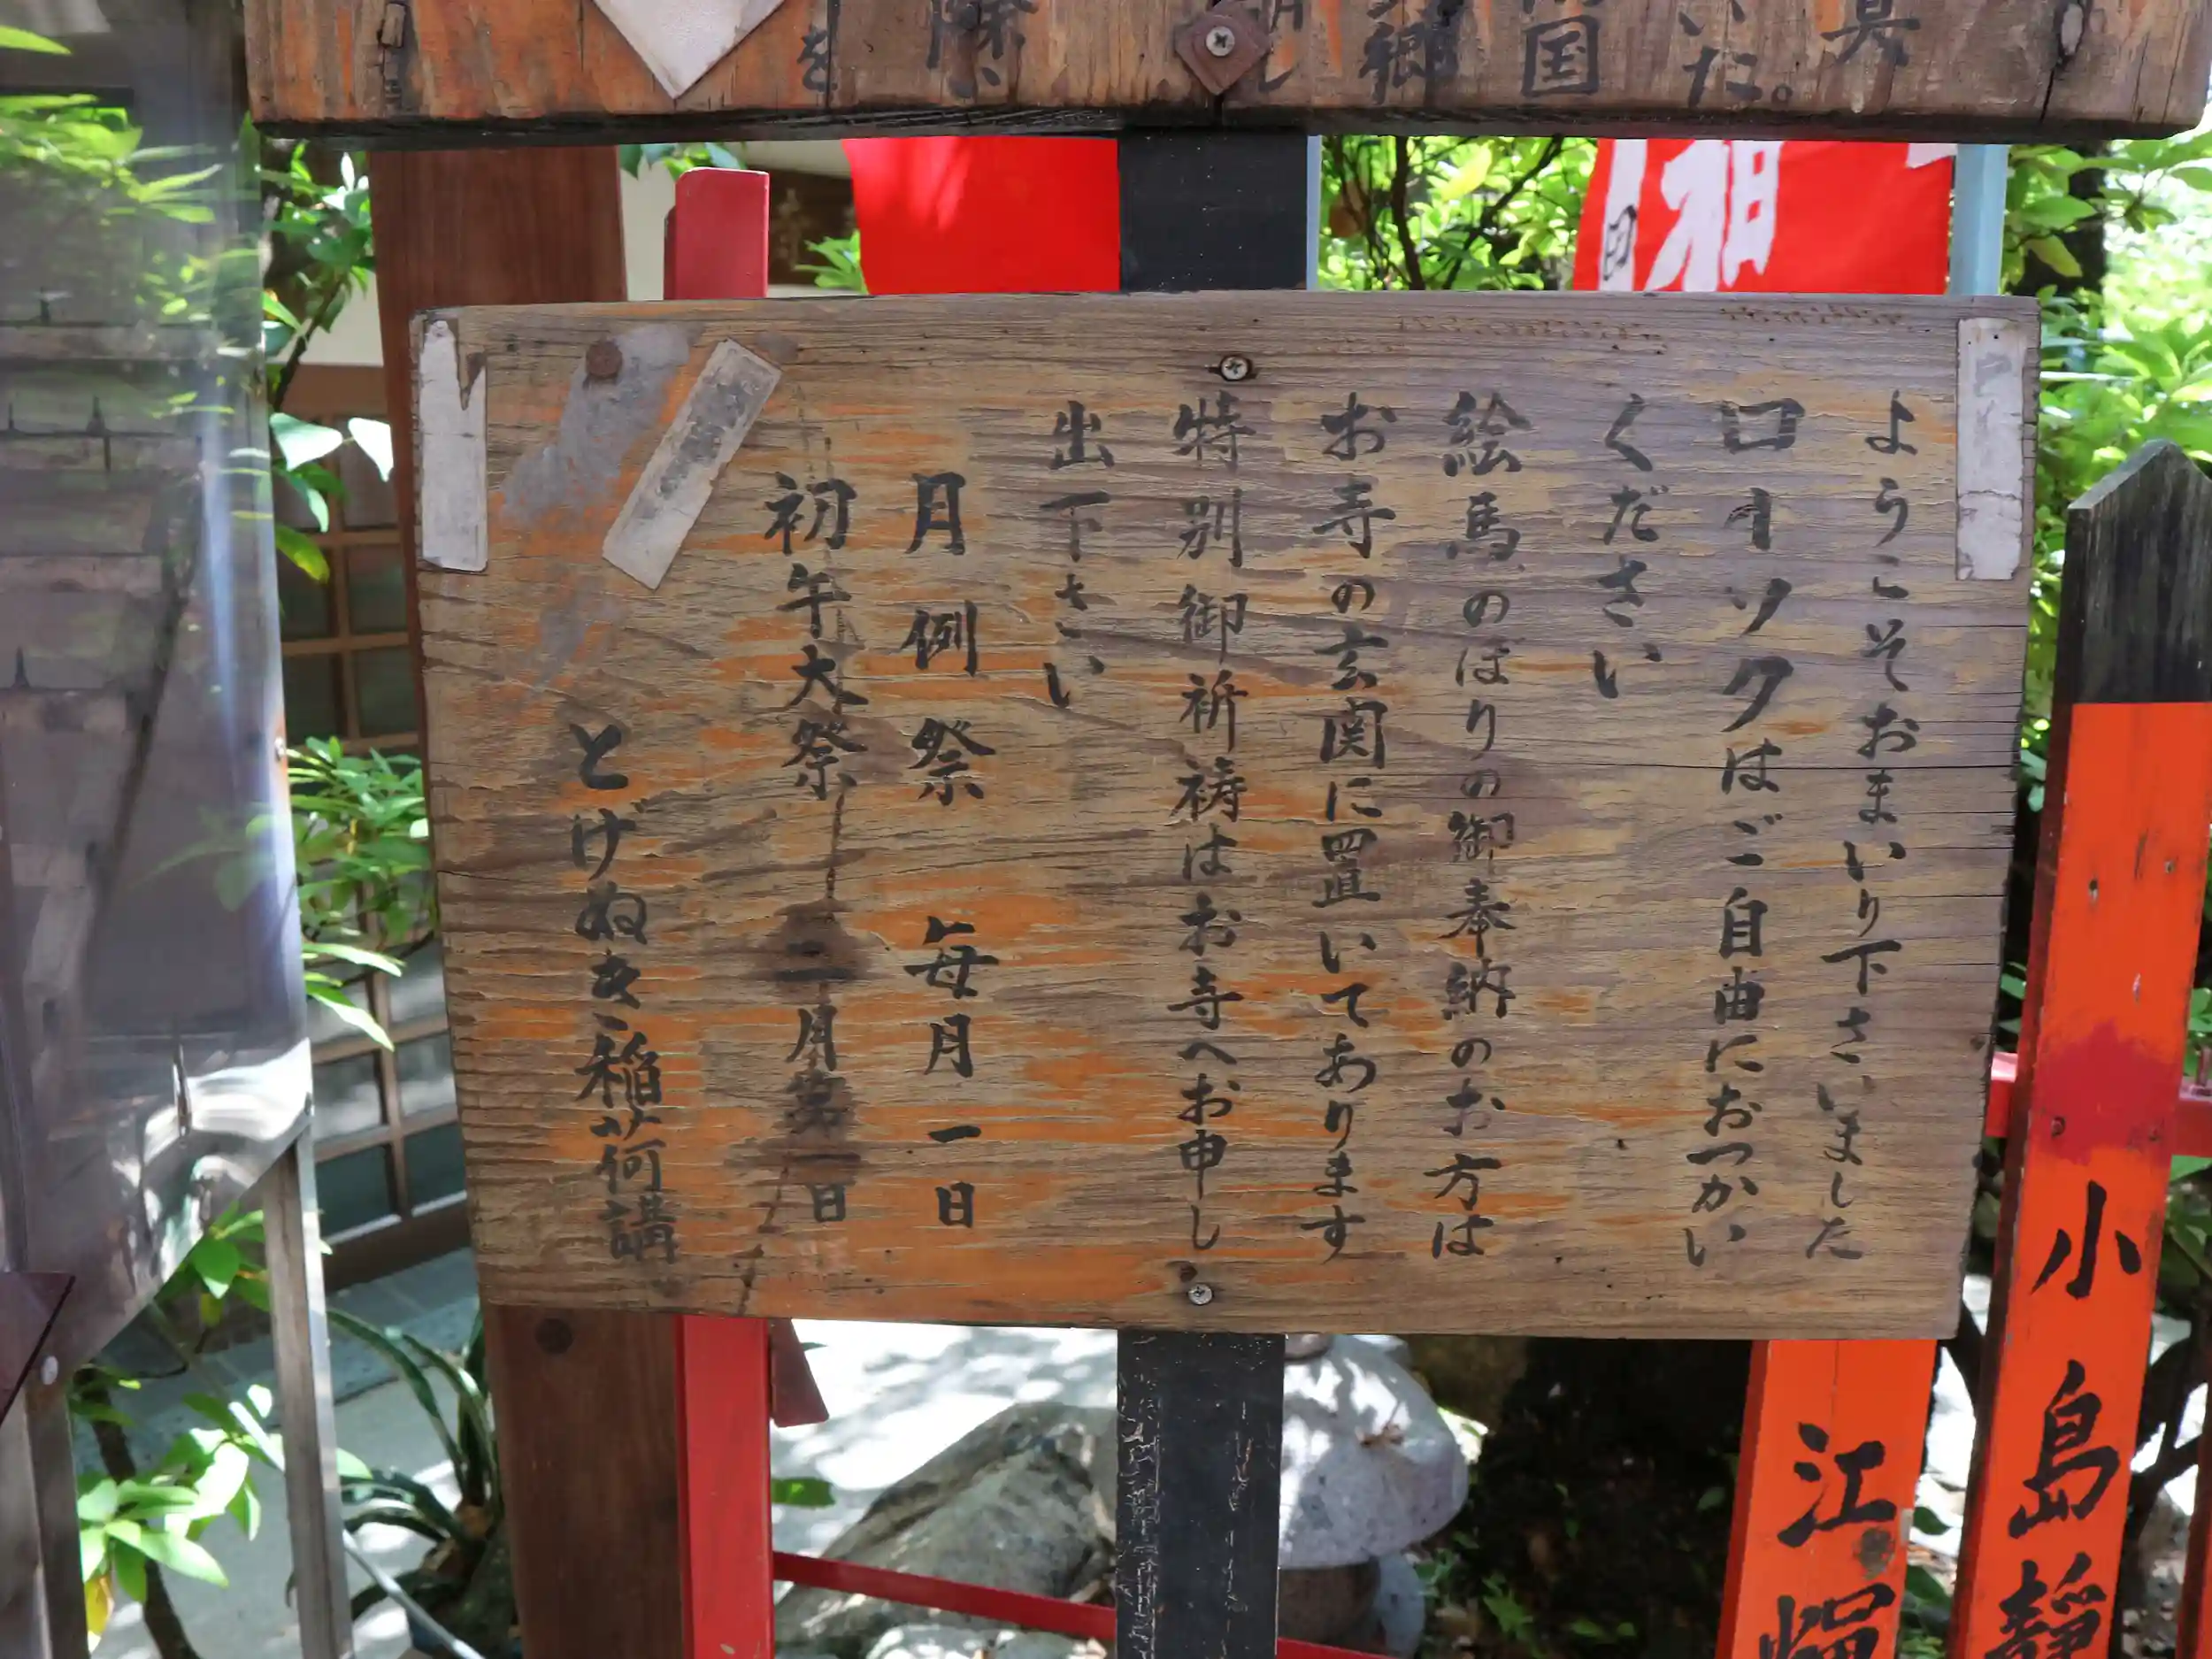 ようこそおまいり下さいました
ローソクはご自由におつかい
ください
絵馬のぼりの御奉納のお方は
お寺の玄関に置いてあります
特別御祈祷はお寺へお申し
出下さい
月例祭 毎月一日
初午大祭 二月第一日
とげぬき稲荷講
いた。
国
郷
除
を
小島静
江